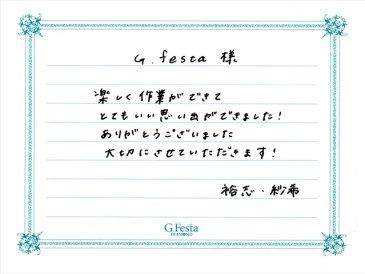 G.festa 様
楽しく作業ができて
とてもいい思い出ができました!
ありがとうございました
大切にさせていただきます!
裕志・紗希
G.Festa
DIAMOND